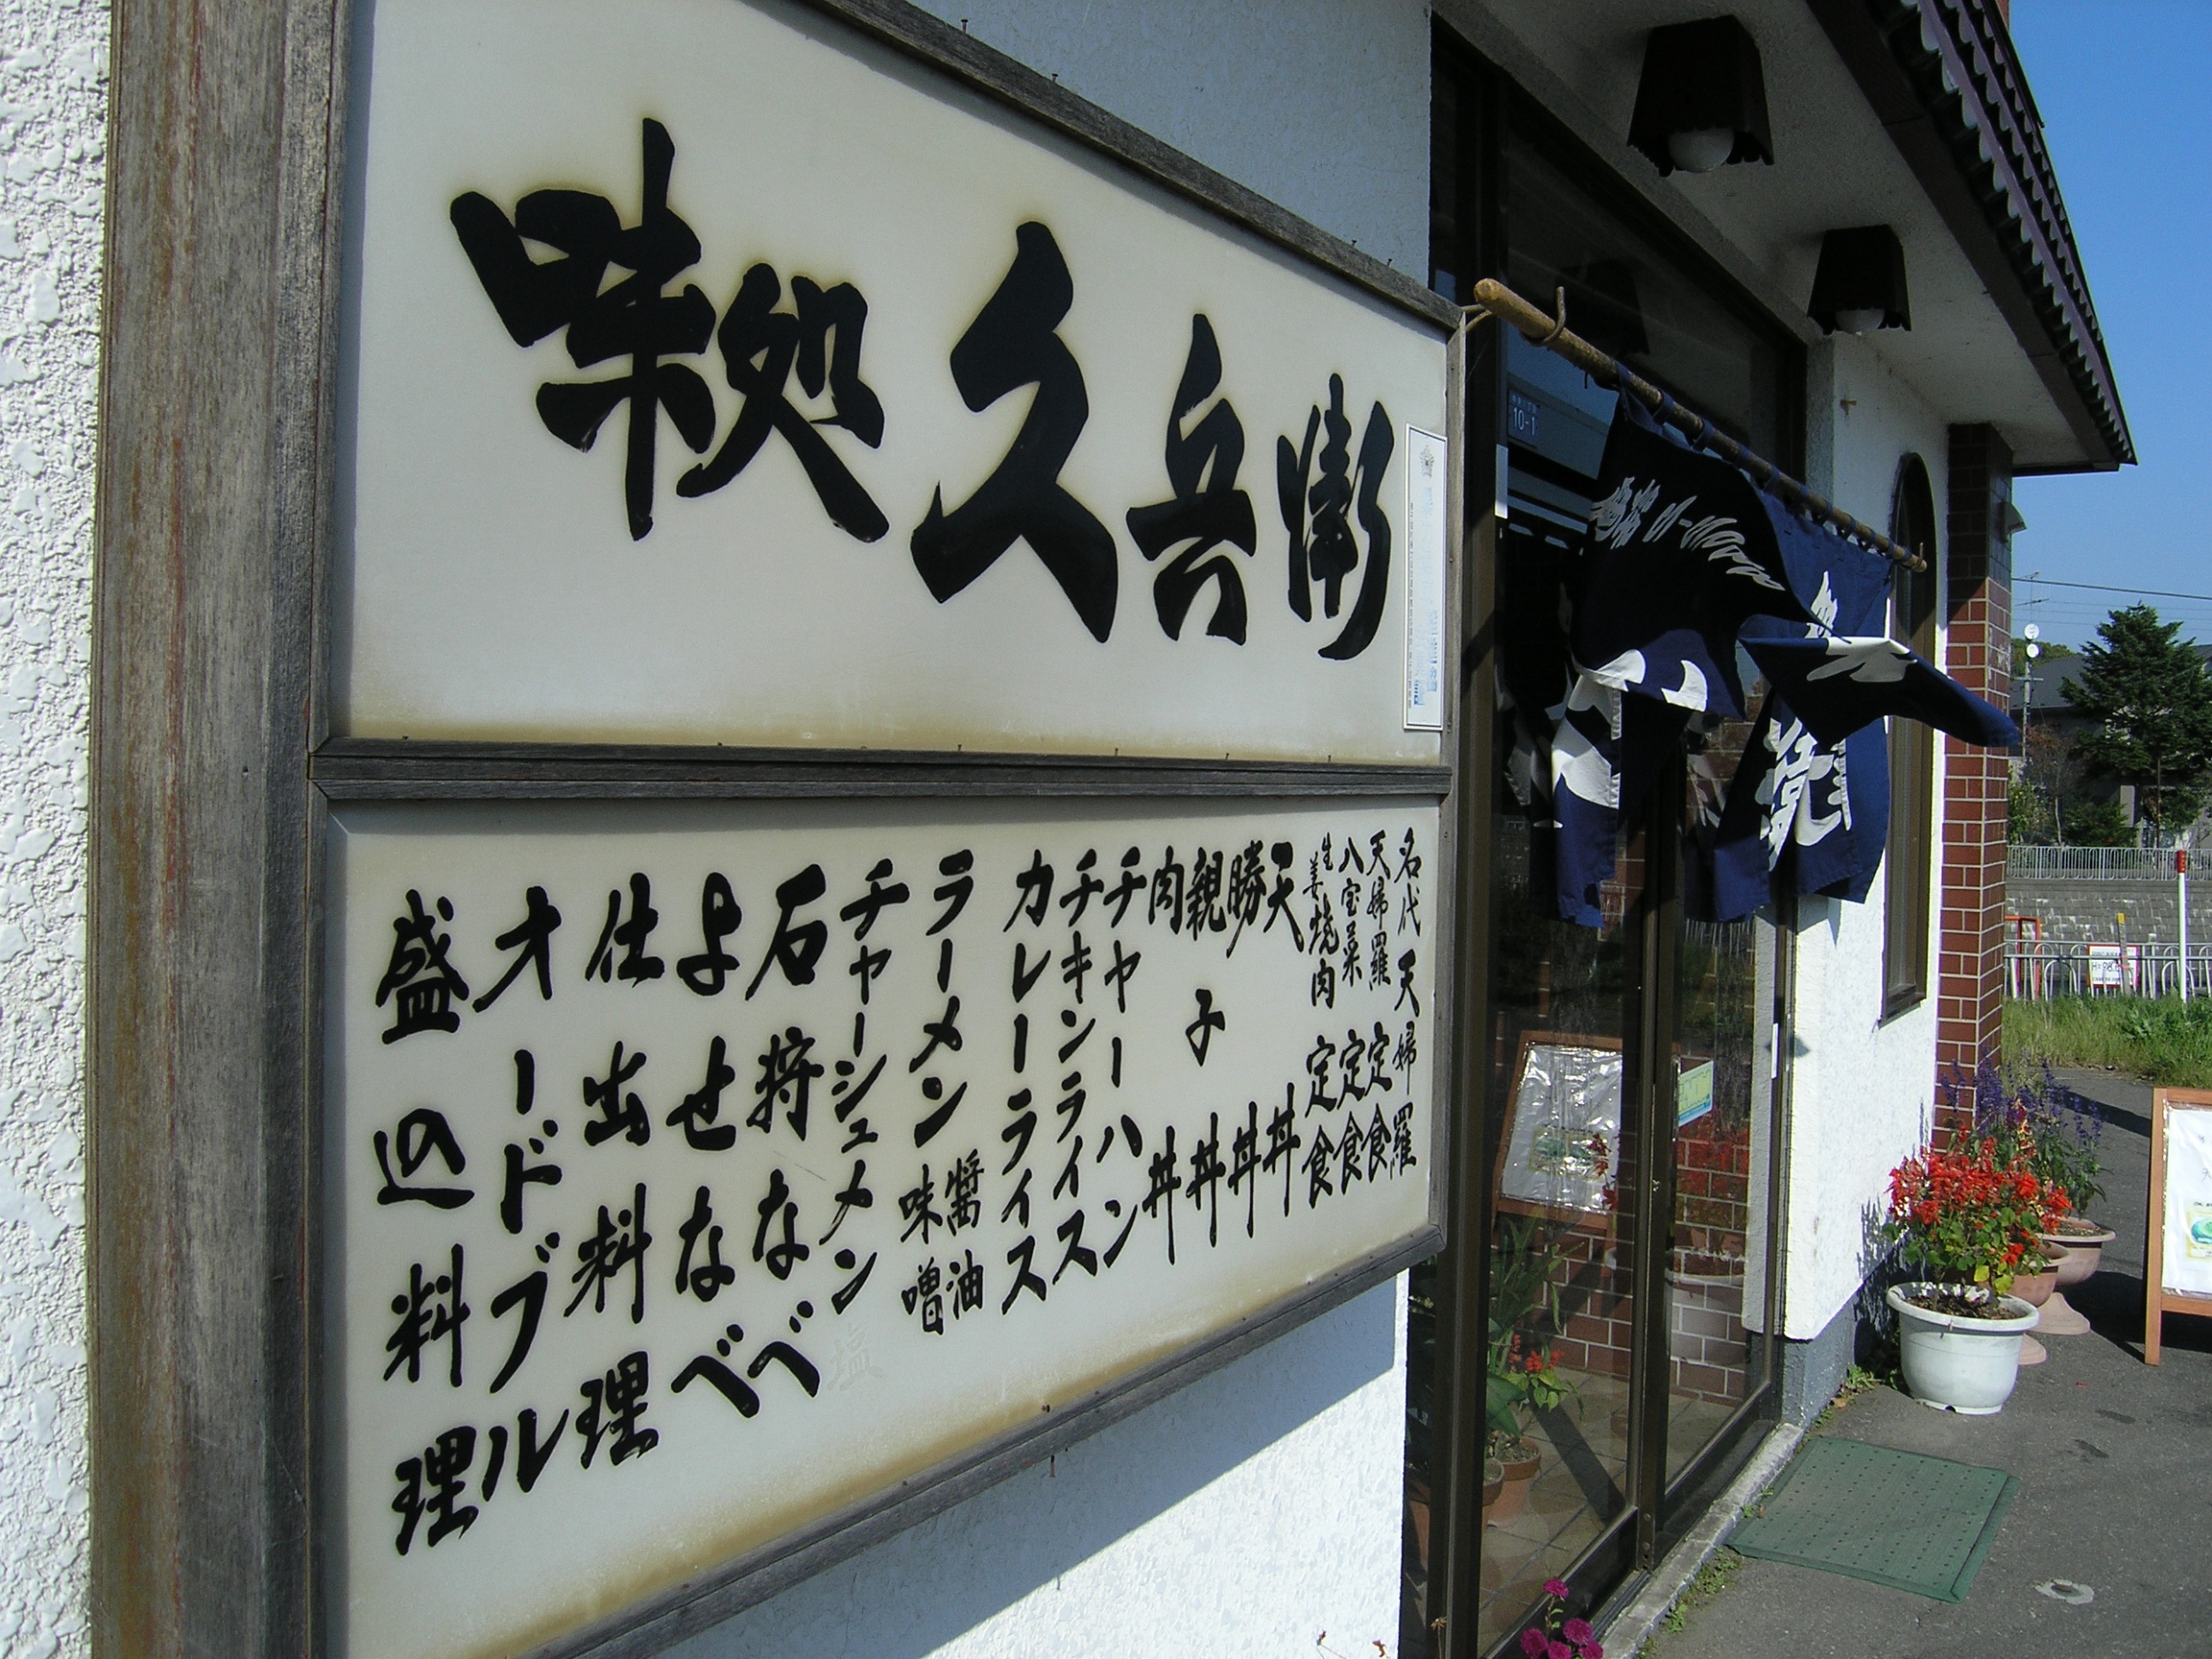 味処 久兵衛
名代 天婦羅
天婦羅 定食
八宝菜 定食
生姜焼肉 定食
天丼
勝丼
親子丼
肉丼
チャーハン
チキンライス
カレーライス
ラーメン 醤油 味噌
塩
チャーシュメン
石狩なべ
よせなべ
仕出料理
オードブル
盛込料理
10-1